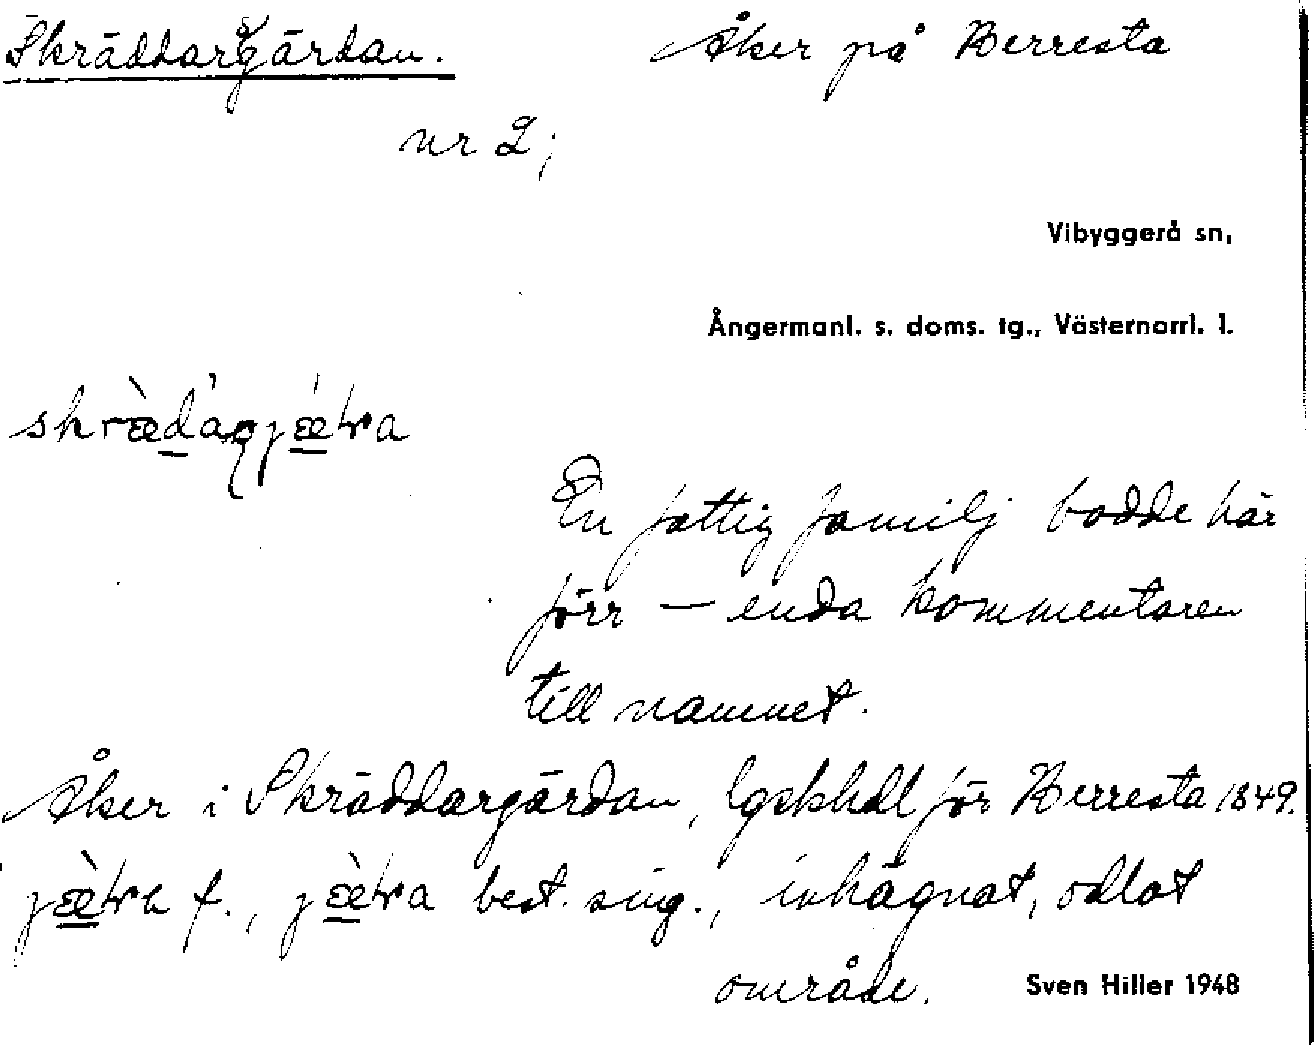 Skräddargärdan. Åker på Berresta
nr 2;
Vibyggerå sn,
Ångermanl. s. doms. tg., Västernorrl. l.
En fattig familj bodde här
förr — enda kommentaren
till namnet.
Åker i Skräddargärdan, lgskhdl för Berresta 1849.
f., best. sing., inhägnat, odlat
område. Sven Hiller 1948